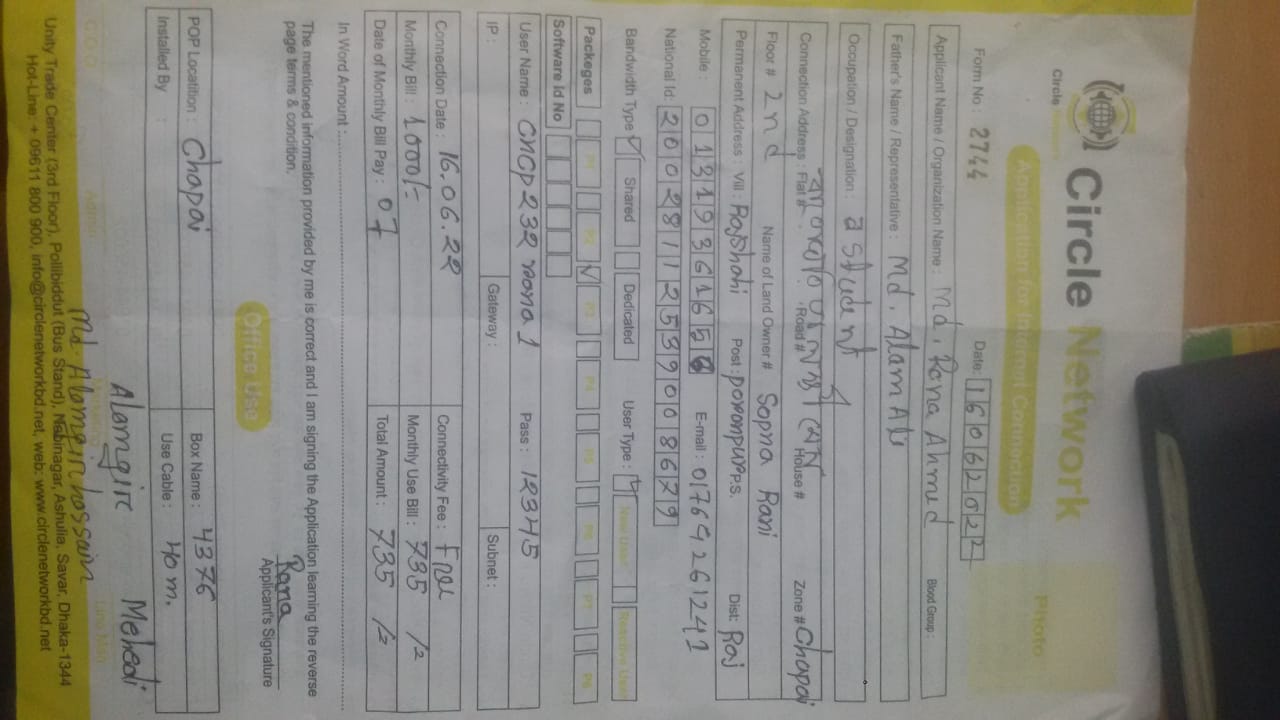 Circle Network
Circle Network
Application for Internet Connection
PHOTO
Form No : 2744 Date: 16062022
Applicant Name / Organization Name : Md. Rona Ahmed Blood Group :
Father's Name / Representative : Md. Alam Ali
Occupation / Designation : a student
Connection Address : Flat # Road # House # Zone # Chapai
Floor # 2nd Name of Land Owner # Sopna Rani
Permanent Address : Vill : Rajshahi Post : P.S. Dist: Raj
Mobile : E-mail : 01769261241
National Id: 20028112539008629
Bandwidth Type Shared Dedicated User Type : New User Reactive User
Packeges P1 P2 P3 P4 P5 P6 P7 P8
Software Id No
User Name : cncp232 rona1 Pass : 12345
IP : Gateway : Subnet :
Connection Date : 16.06.22 Connectivity Fee : Free
Monthly Bill : 1000/- Monthly Use Bill : 735
Date of Monthly Bill Pay : 07 Total Amount : 735
In Word Amount :
The mentioned information provided by me is correct and I am signing the Application learning the reverse
page terms & condition.
Rana
Applicant's Signature
Office Use
POP Locatition : Chapai Box Name : 4376
Installed By : Use Cable : 40 m.
Alamgir Mehedi
Md. Alamgir hossain
Unity Trade Center (3rd Floor), Pollibiddut (Bus Stand), Nabinagar, Ashulia, Savar, Dhaka-1344
Hot-Line: + 09611 800 900, info@circlenetworkbd.net, web: www.circlenetworkbd.net